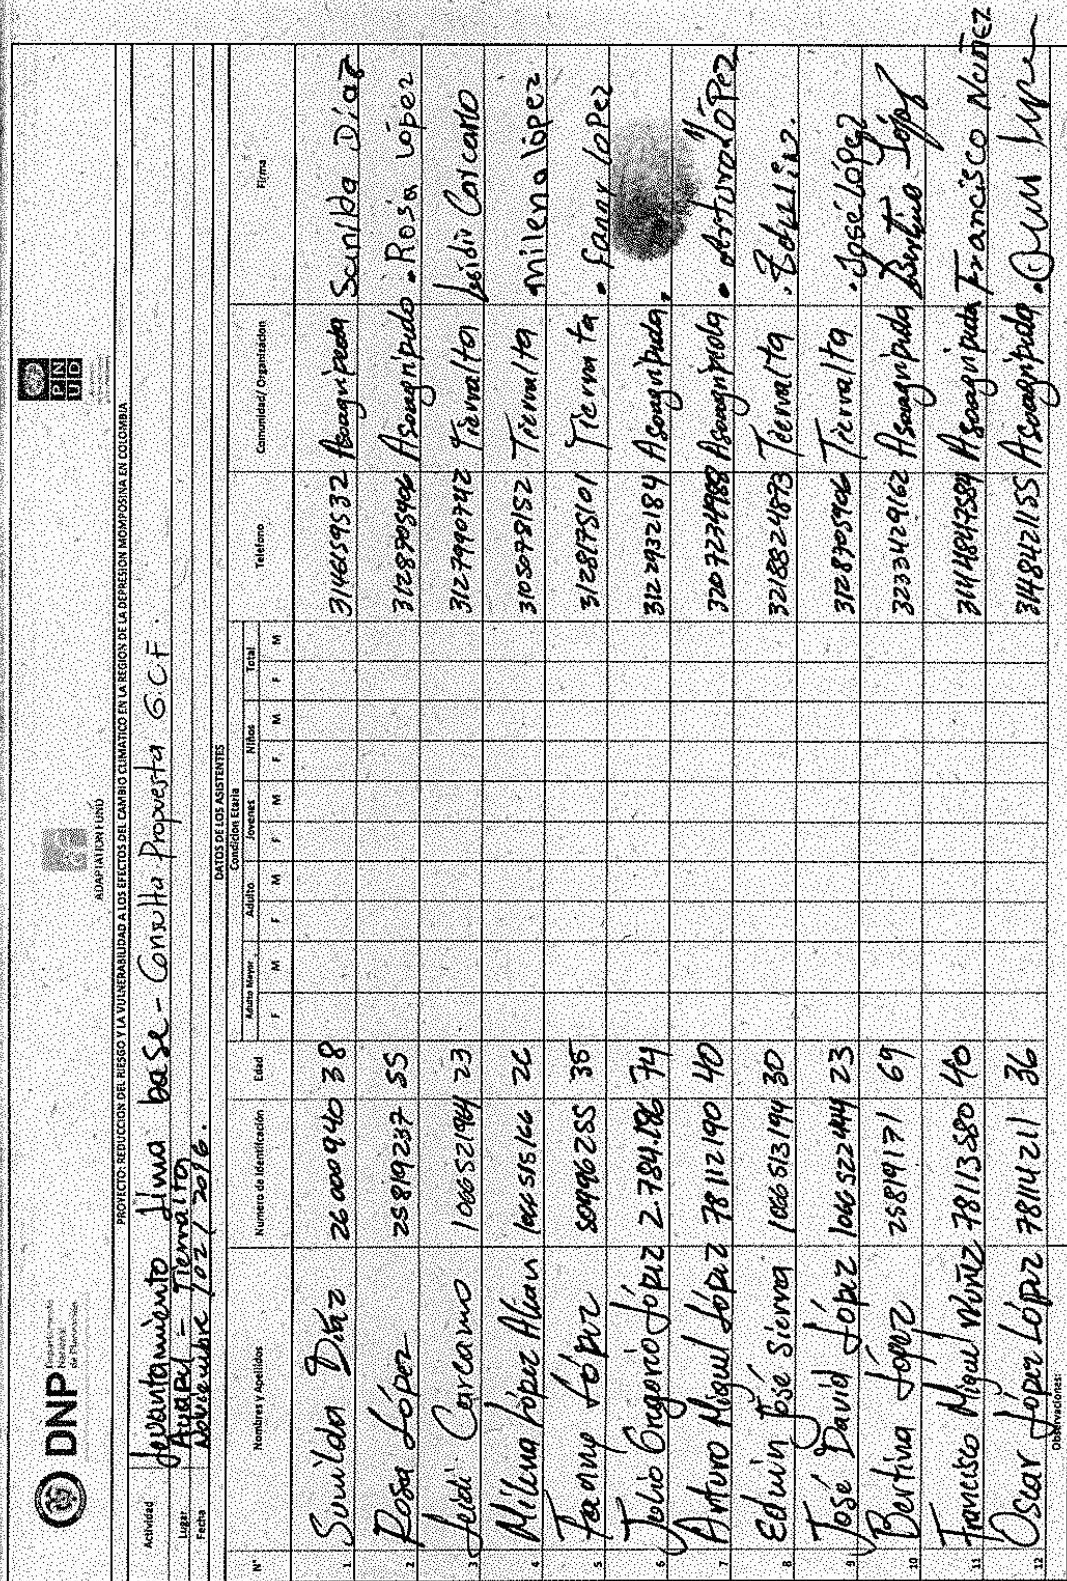 DNP Departamento Nacional de Planeación
ADAPTATION FUND
PNUD
PROYECTO: REDUCCION DEL RIESGO Y LA VULNERABILIDAD A LOS EFECTOS DEL CAMBIO CLIMATICO EN LA REGION DE LA DEPRESION MOMPOSINA EN COLOMBIA
Actividad Levantamiento línea base - Consulta Propuesta GCF.
Lugar - Tierralta
Fecha Noviembre /02/ 2016.
DATOS DE LOS ASISTENTES
N° Nombres y Apellidos Numero de Identificación Edad Condicion Etaria Telefono Comunidad/ Organización Firma
Adulto Mayor Adulto Jovenes Niños Total
F M F M F M F M F M
1 Sunilda Diaz 26000940 38 3146659532 Asoagripada Sunilda Diaz
2 Rosa López 25819237 55 3128705906 Asoagripada . Rosa López
3 Leidi Carcamo 1066521964 23 3127990742 Tierralta Leidiv Carcamo
4 Milena López Alian 1066515166 26 3105078152 Tierralta milena lopez
5 Fanny López 50996255 35 3128175101 Tierra ta . fanny lopez
6 Julio Gregorio López 2.784.186 74 3122932184 Asoagripada.
7 Arturo Miguel López 78112190 40 3207224988 Asoagripada . Arturo López
8 Edwin José Sierra 1066513194 30 3218824873 Tierralta . Edwin.
9 José David López 1066522444 23 3128705906 Tierralta . José López
10 Bertina López 25819171 69 3233429162 Asoagripada Bertina López
11 Francisco Miguel Nuñez 78113580 40 Asoagripada Francisco Nuñez
12 Oscar López López 78114211 36 3148421155 Asoagripada .
Observaciones: